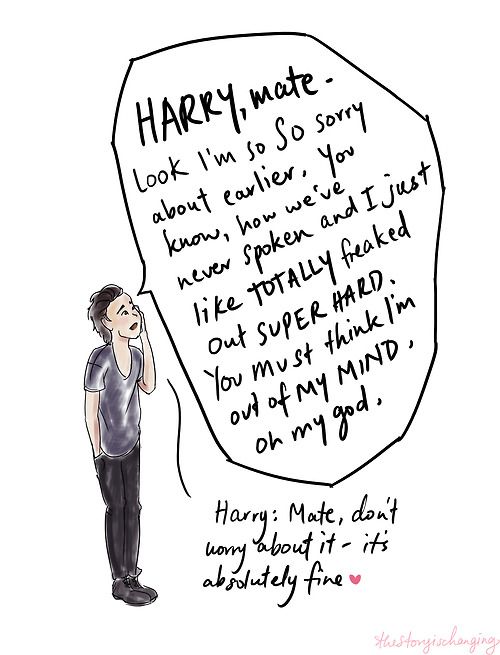 HARRY, mate.
Look I'm so So sorry
about earlier. You
know, how we've
never spoken and I just
like TOTALLY freaked
out SUPER HARD.
You must think I'm
out of MY MIND.
oh my god.
Harry: Mate, don't
worry about it - it's
absolutely fine ♥
thestoryischanging